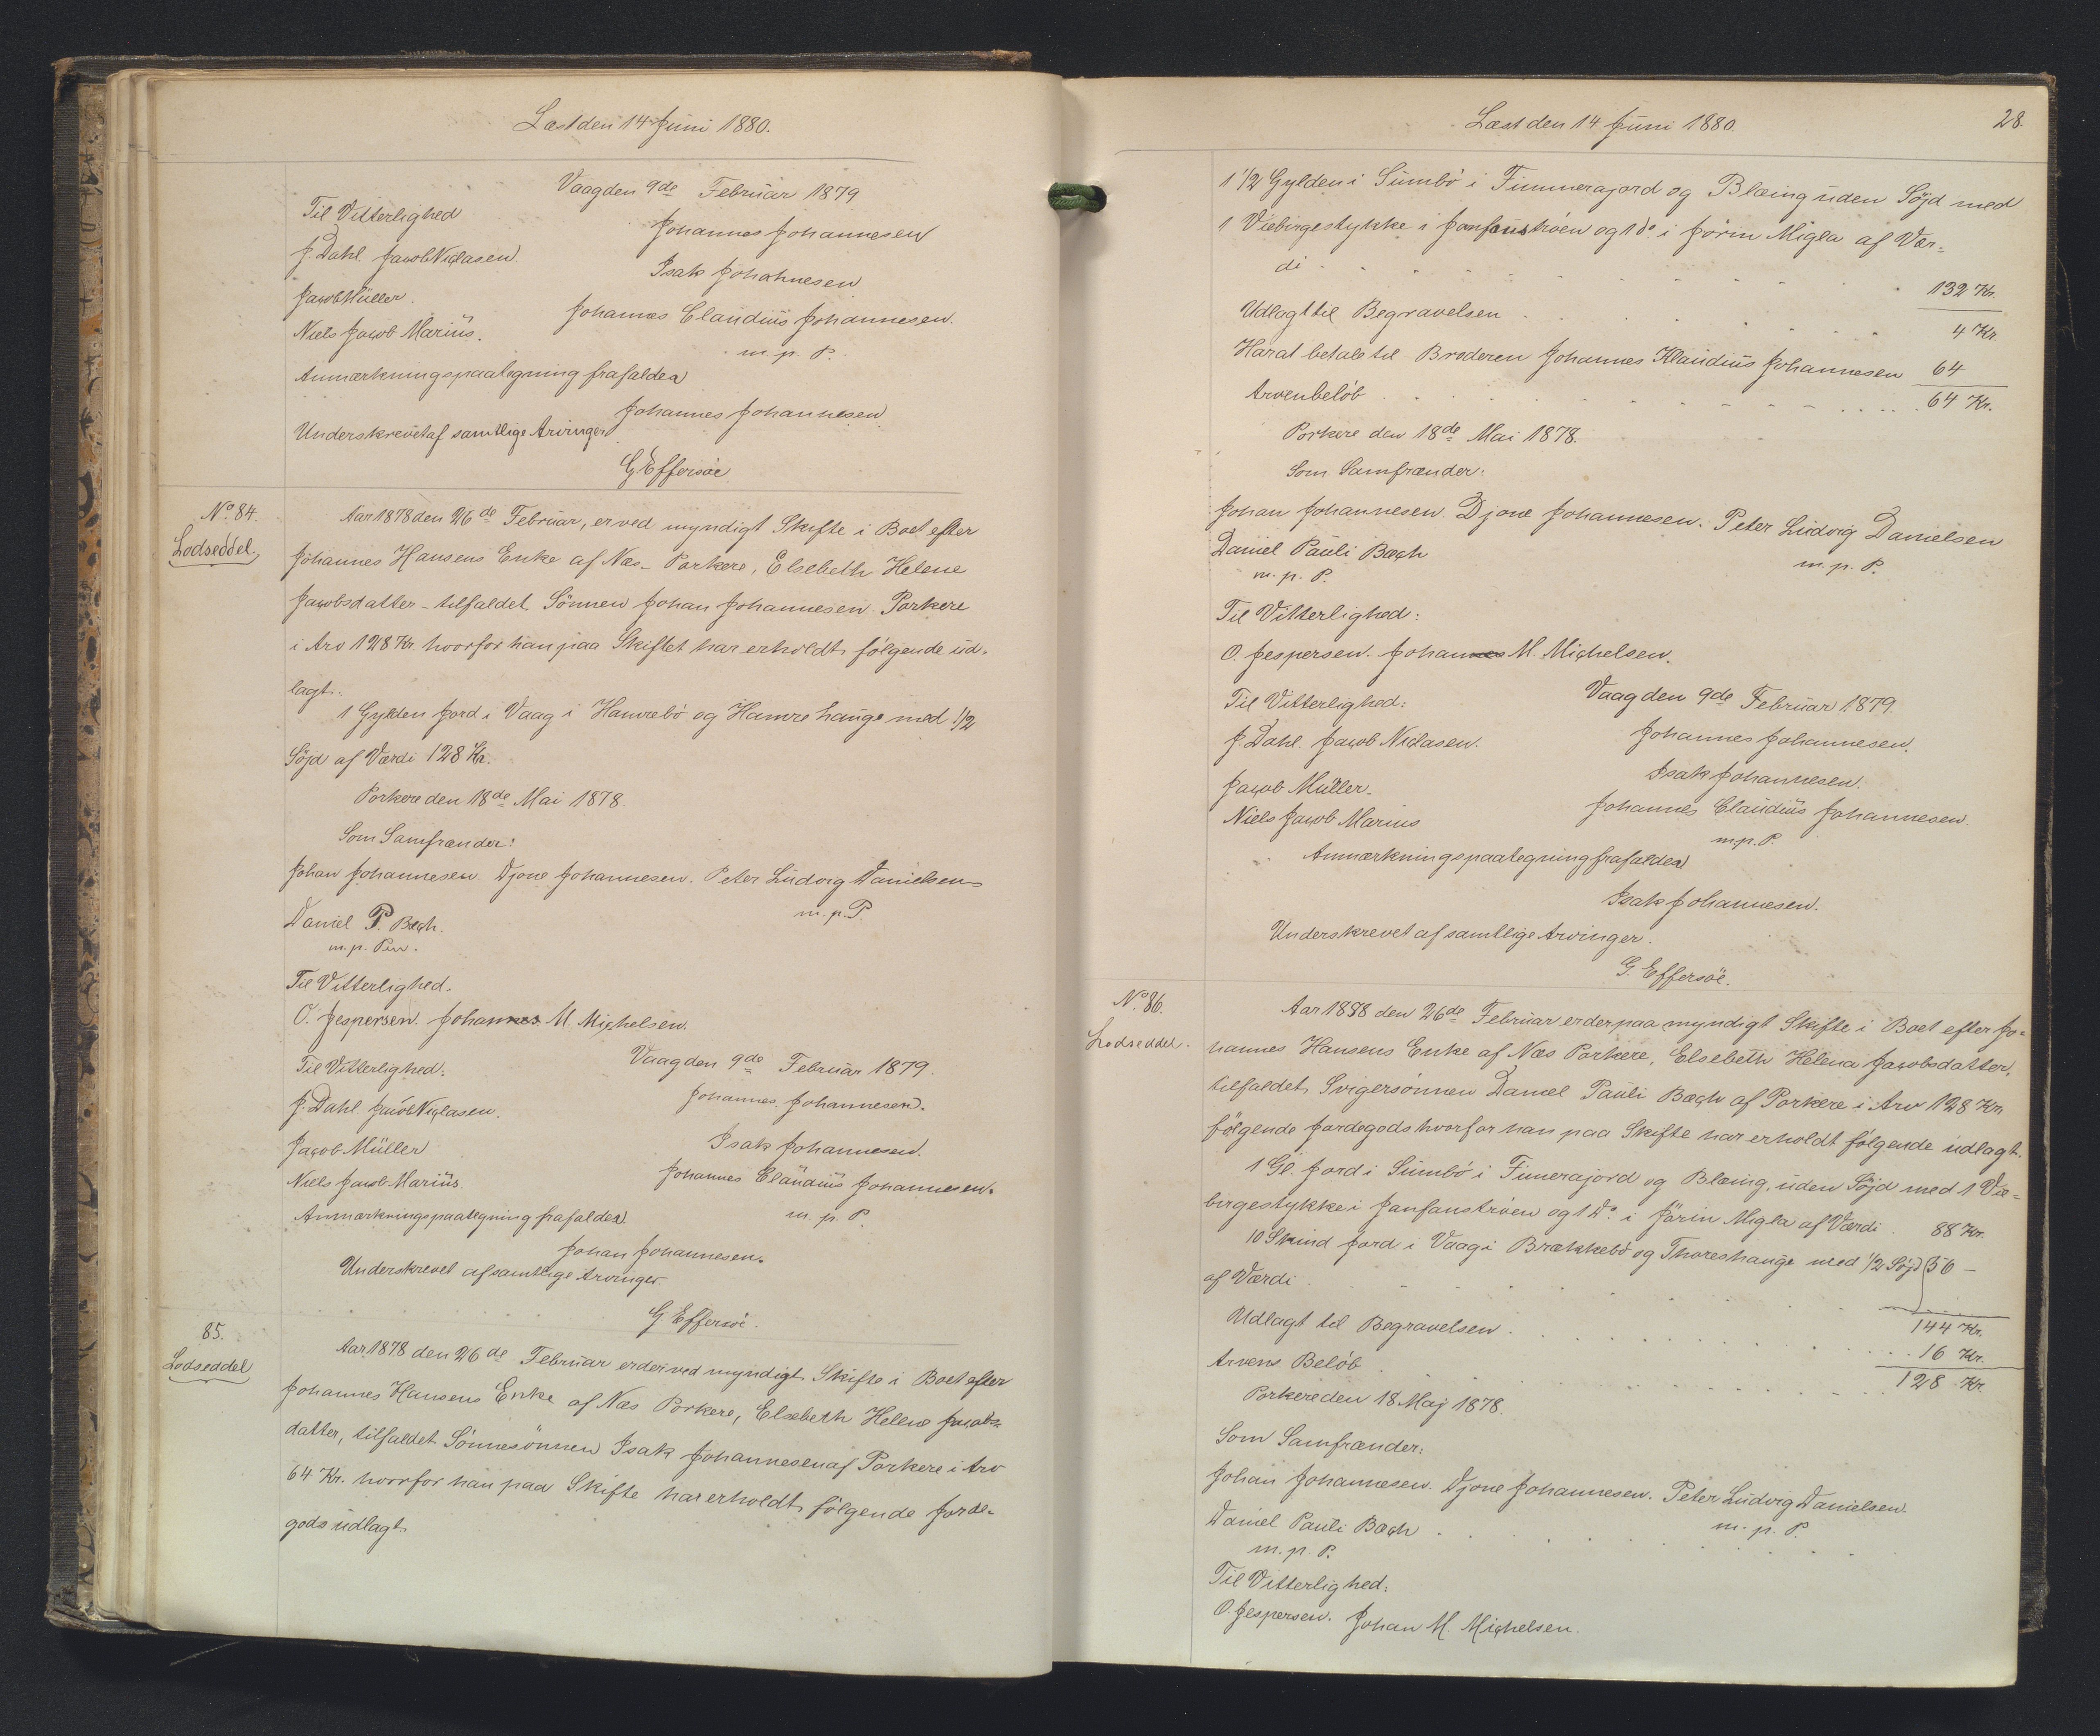 Læst den 14 Juni 1880.
Vaag den 9de Februar 1879
Til Vitterlighed
Johannes Johannesen
J. Dahl. Jacob Niclasen.
Isak Johannesen
Jacob Müller.
Johannes Claudius Johannesen.
Niels Jacob Marius.
m. p. P.
Anmærkningspaategning frafaldes
Johannes Johannesen
Underskrevet af samtlige Arvinger
G. Effersøe
No. 84.
Lodseddel.
Aar 1878 den 26de Februar, er ved myndigt Skifte i Boet efter
Johannes Hansens Enke af Næs-Porkere, Elsebeth Helene
Jacobsdatter - tilfaldet Sönnen Johan Johannesen Porkere
i Arv 128 Kr. hvorfor han paa Skiftet har erholdt fölgende ud-
lagt.
1 Gylden Jord i Vaag i Hamrebö og Hamrehauge med 1/2
Söjd af Værdi 128 Kr.
Porkere den 18de Mai 1878.
Som Samfrænder:
Johan Johannesen. Djone Johannesen. Peter Ludvig Danielsen
Daniel P. Bæch.
m. p. P.
m. p. Pen.
Til Vitterlighed.
O. Jespersen. Johannes M. Michelsen.
Til Vitterlighed.
Vaag den 9de Februar 1879.
J. Dahl Jacob Niclasen.
Johannes Johannesen.
Jacob Müller
Isak Johannesen.
Niels Jacob Marius.
Johannes Claudius Johannesen.
Anmærkningspaategning frafaldes.
m. p. P.
Johan Johannesen.
Underskrevet af samtlige Arvinger.
G. Effersöe.
85.
Lodseddel
Aar 1878 den 26de Februar er der ved myndigt Skifte i Boet efter
Johannes Hansens Enke af Næs Porkere, Elsebeth Helene Jacobs-
datter, tilfaldet Sönnesönnen Isak Johannesen af Porkere i Arv
64 Kr. hvorfor han paa Skifte har erholdt fölgende Jorde-
gods udlagt
Læst den 14 Juni 1880.
28.
1 1/2 Gylden i Sumbö i Fimmerajord og Blæing uden Söjd med
1 Viebirgestykke i Janfanstróen og 1 do. i Jörin Migla af Vær-
di
132 Kr.
Udlagt til Begravelsen
4 Kr
Har at betale til Broderen Johannes Klaudius Johannesen 64
Arvenbelöb
64 Kr.
Porkere den 18de Mai 1878.
Som Samfrænder:
Johan Johannesen. Djone Johannesen. Peter Ludvig Danielsen
Daniel Pauli Bæch
m. p. P.
m. p. P.
Til Vitterlighed:
O. Jespersen. Johannes M. Michelsen.
Til Vitterlighed:
Vaag den 9de Februar 1879.
J. Dahl. Jacob Niclasen.
Johannes Johannesen.
Jacob Müller.
Isak Johannesen.
Niels Jacob Marius
Johannes Claudius Johannesen.
m. p. P.
Anmærkningspaategning frafaldes
Isak Johannesen.
Underskrevet af samtlige Arvinger.
G. Effersöe.
No. 86.
Lodseddel.
Aar 1888 den 26de Februar er der paa myndigt Skifte i Boet efter Jo-
hannes Hansens Enke af Næs Porkere, Elsebeth Helena Jacobsdatter,
tilfaldet Svigersönnen Daniel Pauli Bæch af Porkere i Arv 128 Kr.
fölgende Jordegods hvorfor han paa Skifte har erholdt fölgende udlagt.
1 Gl. Jord i Sumbö i Fimerajord og Blæing, uden Söjd med 1 Vie-
birgestykke i Janfanströen og 1 Do. i Jörin Migla af Værdi
88 Kr.
10 Skind Jord i Vaag i Brækkebö og Thoreshauge med 1/2 Söjd
56 –
af Værdi
144 Kr.
Udlagt til Begravelsen
16 Kr.
Arvens Belöb
128 Kr.
Porkere den 18 Maj 1878.
Som Samfrænder:
Johan Johannesen. Djone Johannesen. Peter Ludvig Danielsen.
Daniel Pauli Bæch
m. p. P.
m. p. P.
Til Vitterlighed:
O. Jespersen. Johan M. Michelsen.